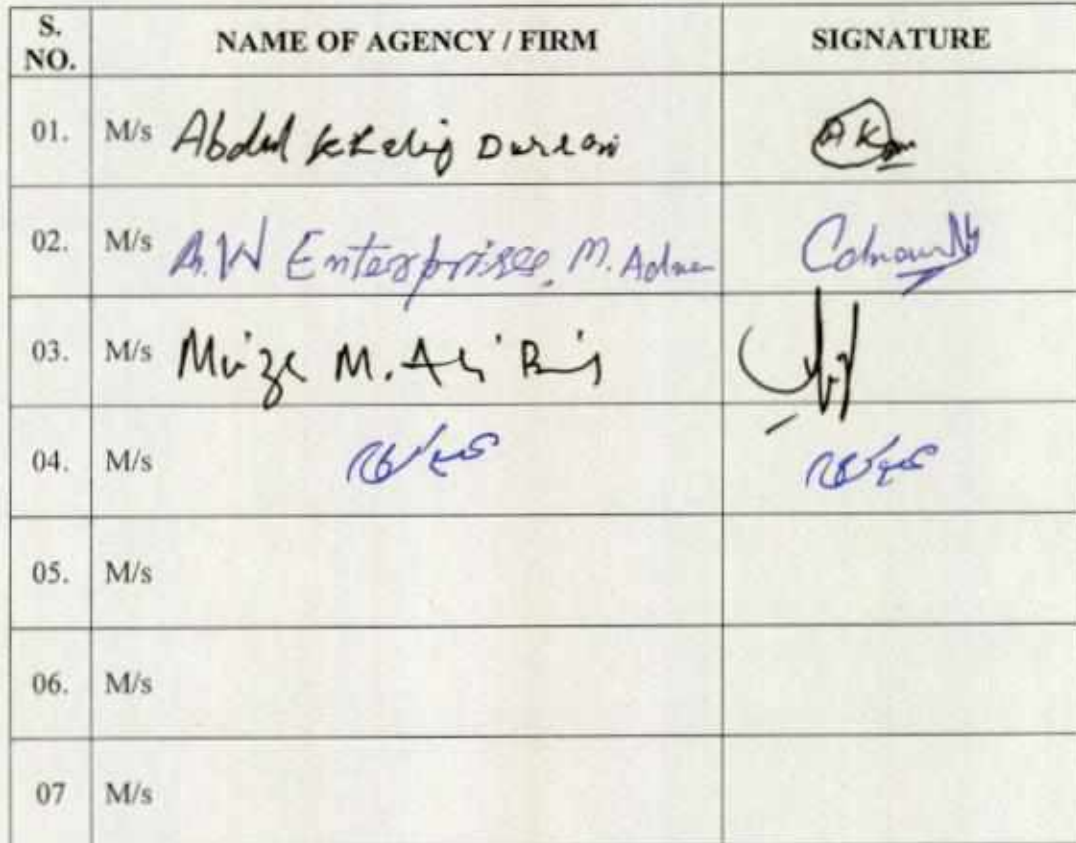 S. NO. NAME OF AGENCY / FIRM SIGNATURE
01. M/s Abdul Khaliq Durrani
02. M/s A.W Enterprises, M. Adnan
03. M/s Mirza M. Ali
04. M/s
05. M/s
06. M/s
07 M/s